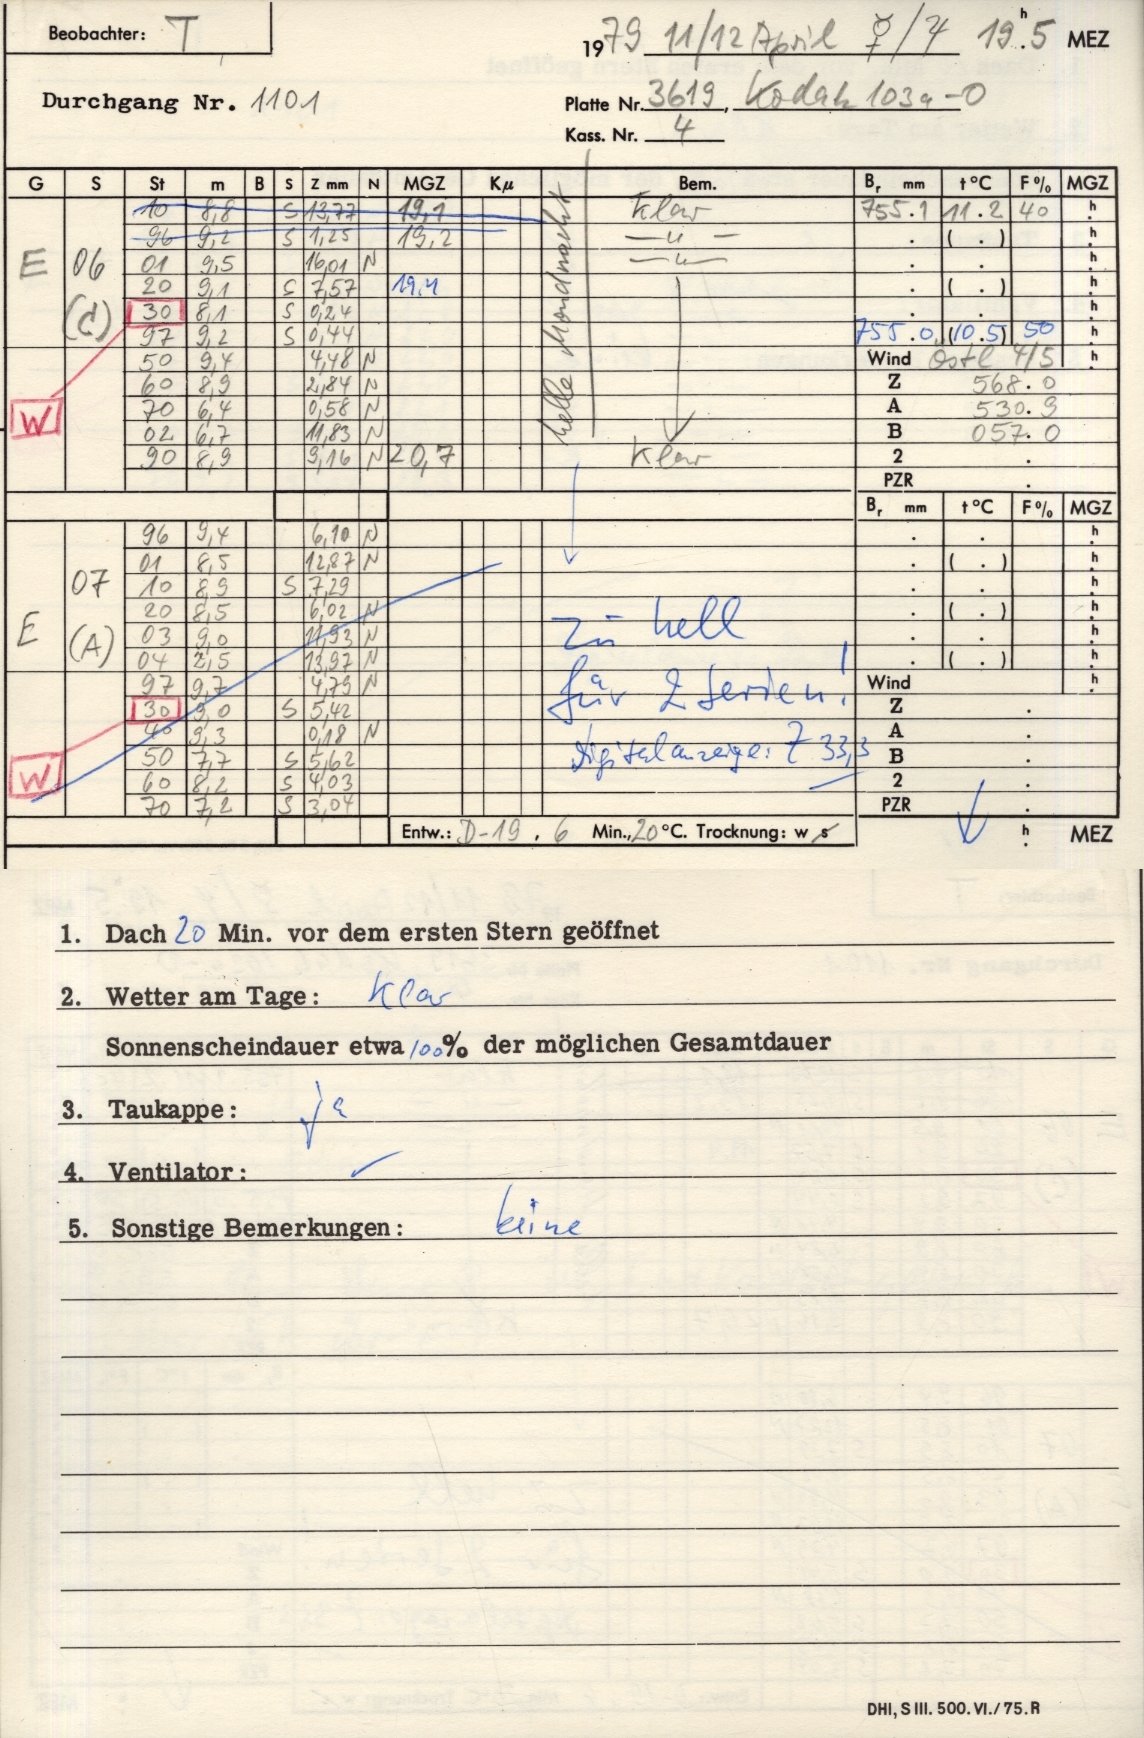 Beobachter: T
1979 11/12 April ☿/♃ 19h.5 MEZ
Durchgang Nr. 1101
Platte Nr. 3619, Kodak 103a-O
Kass. Nr. 4
G S St m B S Z mm N MGZ Kµ Bem. Br mm t°C F% MGZ
10 8,8 S 13,77 19,1 Klar 755.1 11.2 40 h
96 9,2 S 1,25 19,2 —"— . ( . ) h
E 06 01 9,5 16,01 N —"— . . h
20 9,1 S 7,57 19,4 . ( . ) h
(C) 30 8,1 S 0,24 . . h
97 9,2 S 0,44 755.0 (10.5) 50 h
helle Mondnacht
50 9,4 4,48 N Wind Östl 4/5 h
60 8,9 2,84 N Z 568.0
W 70 6,4 0,58 N A 530.9
02 6,7 11,83 N B 057.0
90 8,9 9,16 N 20,7 Klar 2 .
PZR .
Br mm t°C F% MGZ
96 9,4 6,10 N . . h
01 8,5 12,87 N . ( . ) h
07 10 8,9 S 7,29 . . h
20 8,5 6,02 N . ( . ) h
E 03 9,0 11,93 N zu hell . . h
(A) 04 2,5 13,97 N . ( . ) h
97 9,7 4,79 N für 2 Serien! Wind h
30 9,0 S 5,42 Z .
40 9,3 0,18 N A .
W 50 7,7 S 5,62 Digitalanzeige: Z 33,3 B .
60 8,2 S 4,03 2 .
70 7,2 S 3,04 PZR .
Entw.: D-19 . 6 Min., 20°C. Trocknung: w s h MEZ
1. Dach 20 Min. vor dem ersten Stern geöffnet
2. Wetter am Tage: Klar
Sonnenscheindauer etwa 100% der möglichen Gesamtdauer
3. Taukappe: ja
4. Ventilator: ✓
5. Sonstige Bemerkungen: keine
DHI, S III. 500. VI./75. R